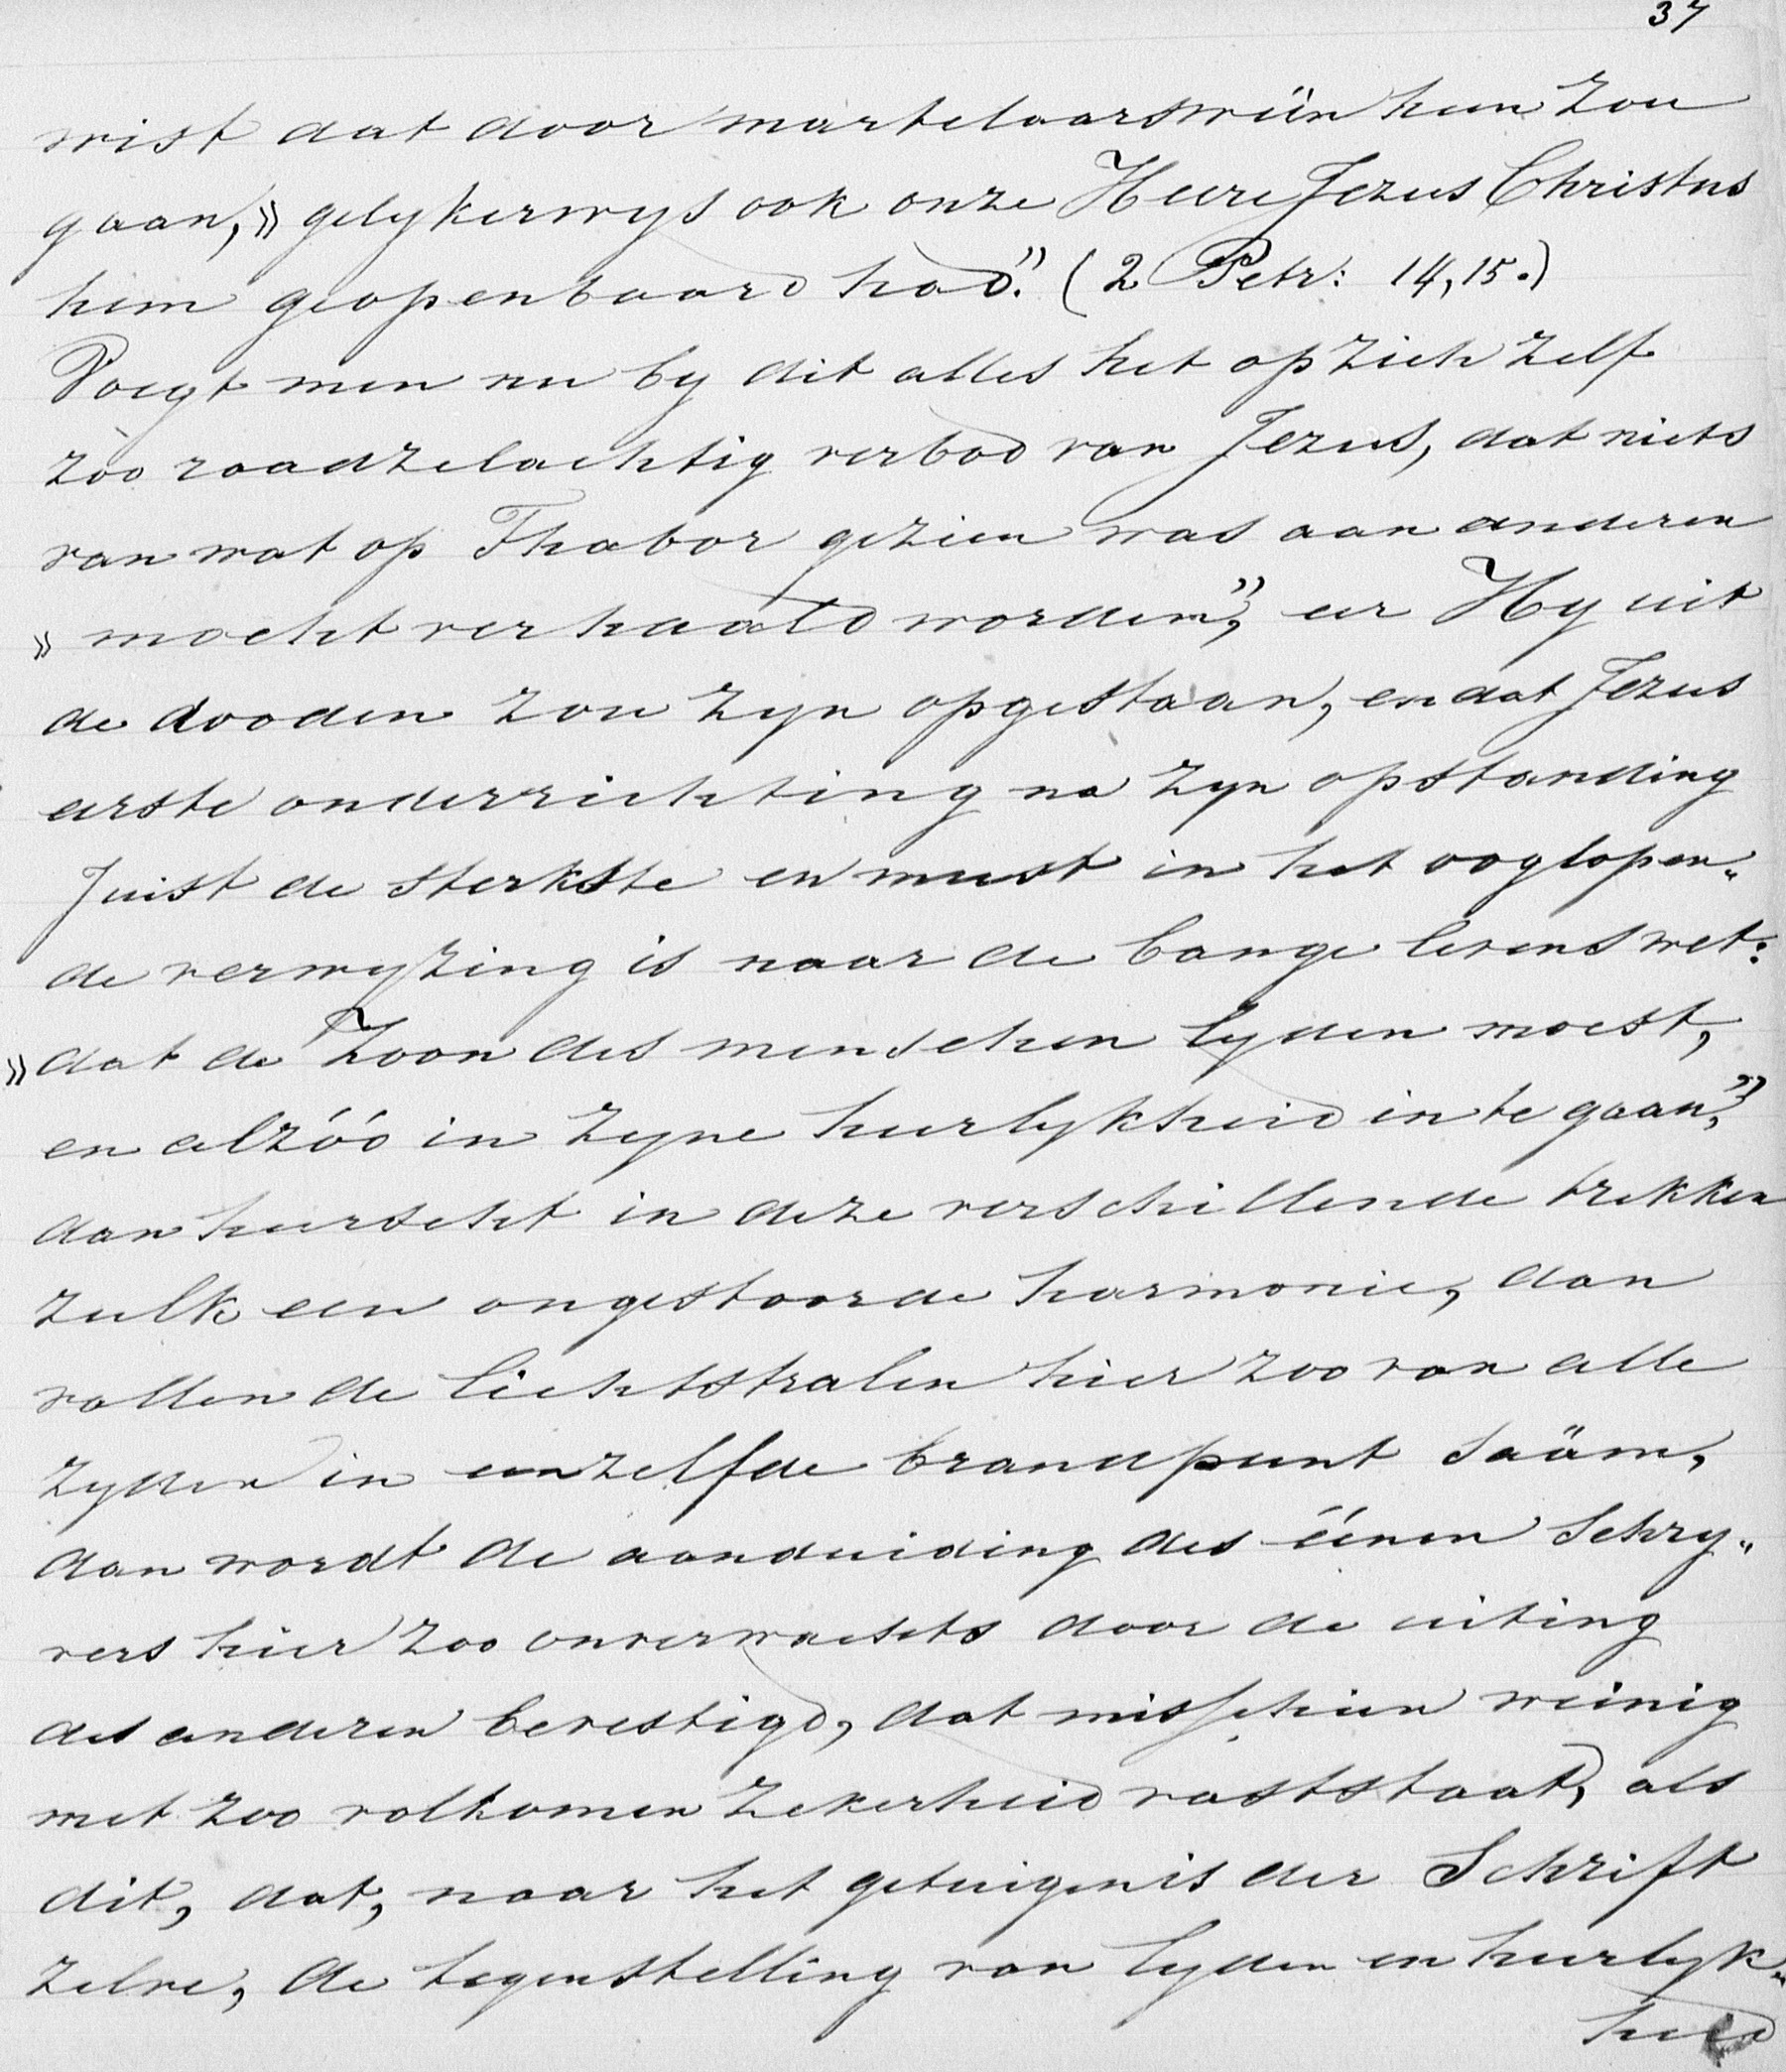 37
wist dat door martelaarswëin heen zou
gaan, » gelykerwys ook onze Heere Jezus Christus
hem geopenbaard had." (2 Petr: 14, 15.)
Voegt men nu by dit alles het op zich zelf
zoo raadzelachtig verbod van Jezus, dat niets
van wat op Thabor gezien was aan anderen
» mocht verhaald worden", eer Hy uit
de dooden zou zyn opgestaan, en dat Jezus
eerste onderrichting na zyn opstanding
juist de sterkste en meest in het ooglopen„
de verwyzing is naar de bange levenswet:
» dat de Zoon des menschen lyden moest,
en alzóó in zyne heerlykheid in te gaan,"
dan heerscht in deze verschillende trekken
zulk een ongestoorde harmonie, dan
vallen de lichtstralen hier zoo van alle
zyden in eenzelfde brandpunt saäm,
dan wordt de aanduiding des éénen schry„
vers hier zoo onverwachts door de uiting
des anderen bevestigd, dat misschien weinig
met zoo volkomen zekerheid vaststaat, als
dit, dat, naar het getuigenis der Schrift
zelve, de tegenstelling van lyden en heerlyk„
heid